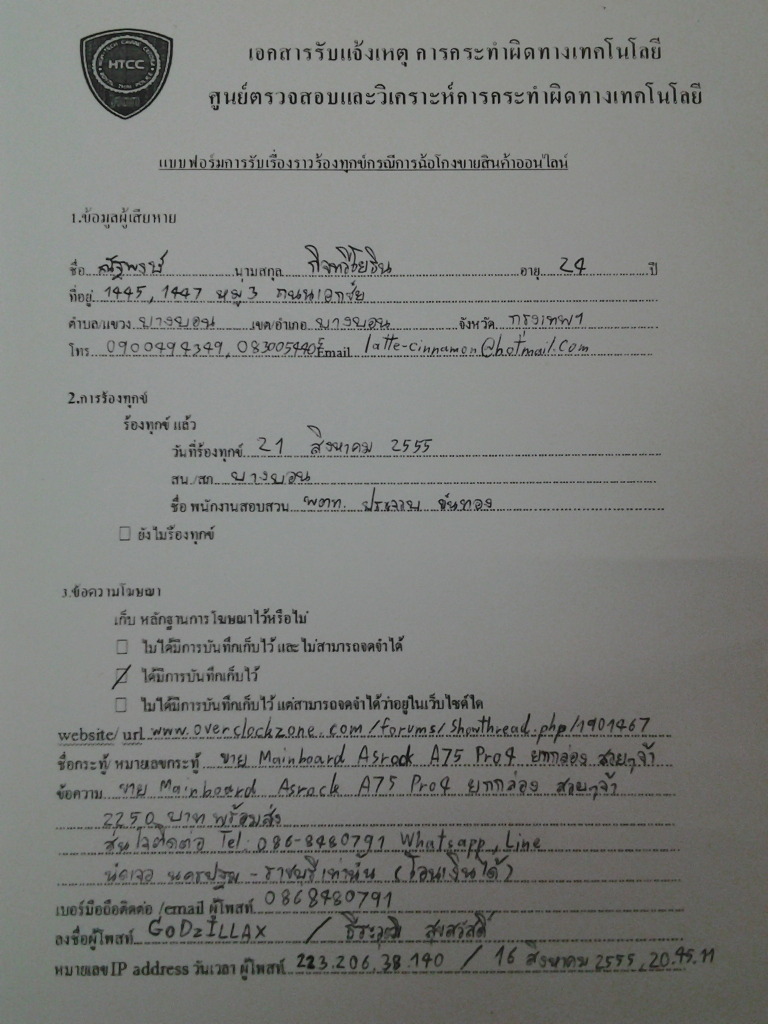 HTCC
เอกสารรับแจ้งเหตุ การกระทำผิดทางเทคโนโลยี
ศูนย์ตรวจสอบและวิเคราะห์การกระทำผิดทางเทคโนโลยี
แบบฟอร์มการรับเรื่องราวร้องทุกข์กรณีการฉ้อโกงขายสินค้าออนไลน์
1.ข้อมูลผู้เสียหาย
ชื่อ ณัฐพงษ์ นามสกุล อายุ 24 ปี
ที่อยู่ 1445, 1447 หมู่ 3 ถนนเอกชัย
ตำบล/แขวง บางบอน เขต/อำเภอ บางบอน จังหวัด กรุงเทพฯ
โทร 0900494349, Email latte-cinnamon@hotmail.com
2.การร้องทุกข์
ร้องทุกข์ แล้ว
วันที่ร้องทุกข์ 21 สิงหาคม 2555
สน./สภ บางบอน
ชื่อ พนักงานสอบสวน พตท. ประจวบ ขันทอง
ยังไม่ร้องทุกข์
3.ข้อความโฆษณา
เก็บ หลักฐานการโฆษณาไว้หรือไม่
ไม่ได้มีการบันทึกเก็บไว้ และไม่สามารถจดจำได้
ได้มีการบันทึกเก็บไว้
ไม่ได้มีการบันทึกเก็บไว้ แต่สามารถจดจำได้ว่าอยู่ในเว็บไซต์ใด
website/ url www.overclockzone.com/forums/showthread.php/1901467
ชื่อกระทู้/ หมายเลขกระทู้ ขาย Mainboard Asrock A75 Pro4 ยกกล่อง สวยๆจ้า
ข้อความ ขาย Mainboard Asrock A75 Pro4 ยกกล่อง สวยๆจ้า
2250 บาท พร้อมส่ง
สนใจติดต่อ Tel. 086-8480791 Whatsapp, Line
นัดเจอ นครปฐม - ราชบุรีเท่านั้น (โอนเงินได้)
เบอร์มือถือติดต่อ /email ผู้โพสท์ 0868480791
ลงชื่อผู้โพสท์ GODZILLAX / ธีระวุฒิ สุขสวัสดิ์
หมายเลขIP address วันเวลา ผู้โพสท์ 223.206.38.140 / 16 สิงหาคม 2555, 20.45.11